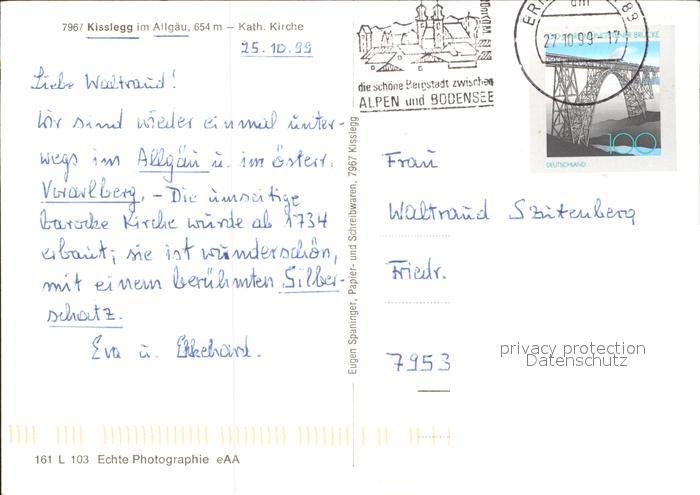 7967 Kisslegg im Allgäu, 654 m – Kath. Kirche
25.10.99
Liebe Waltraud!
Wir sind wieder einmal unter-
wegs im Allgäu u. im österr.
Vorarlberg. – Die umseitige
barocke Kirche wurde ab 1734
erbaut; sie ist wunderschön,
mit einem berühmten Silber-
schatz.
Eva u. Ekkehard.
161 L 103 Echte Photographie eAA
Eugen Spaninger, Papier- und Schreibwaren, 7967 Kisslegg
die schöne Bergstadt zwischen
ALPEN und BODENSEE
27.10.99-17
100
DEUTSCHLAND
Frau
Waltraud
Friedr.
7953
privacy protection
Datenschutz